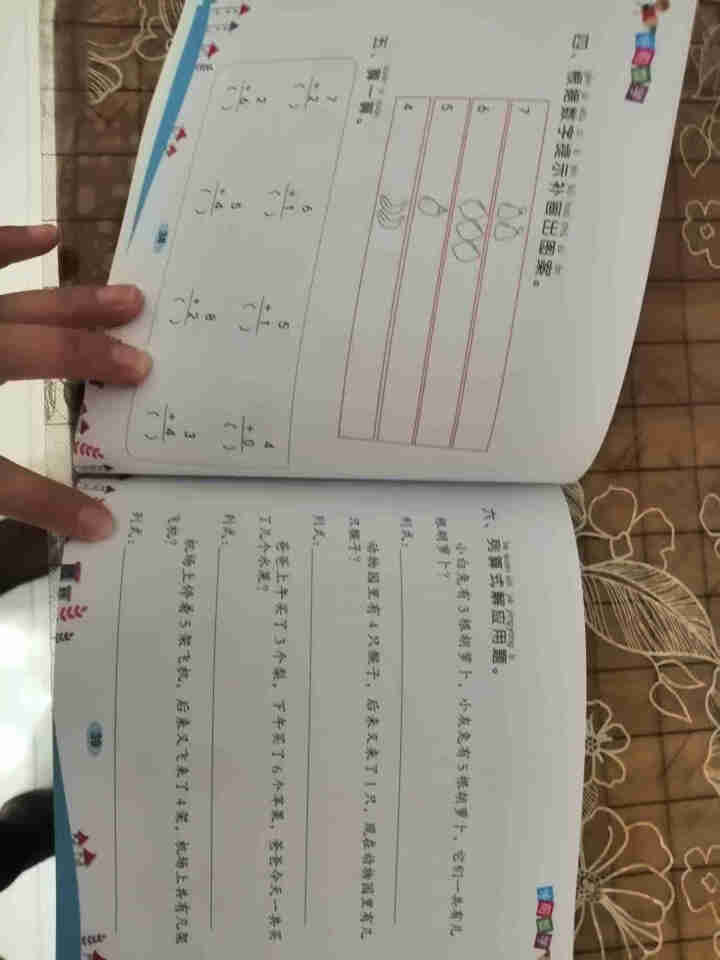 四、根据数字提示补画出图案。
7
6
5
4
五、算一算。
7 6 5 4
+2 +1 +1 +0
( ) ( ) ( ) ( )
2 5 8 3
+6 +4 +2 +4
( ) ( ) ( ) ( )
38
六、列算式解应用题。
小白兔有3根胡萝卜，小灰兔有5根胡萝卜，它们一共有几
根胡萝卜？
列式：
动物园里有4只猴子，后来又来了1只，现在动物园里有几
只猴子？
列式：
爸爸上午买了3个梨，下午买了6个苹果，爸爸今天一共买
了几个水果？
列式：
机场上停着5架飞机，后来又飞来了4架，机场上共有几架
飞机？
列式：
39